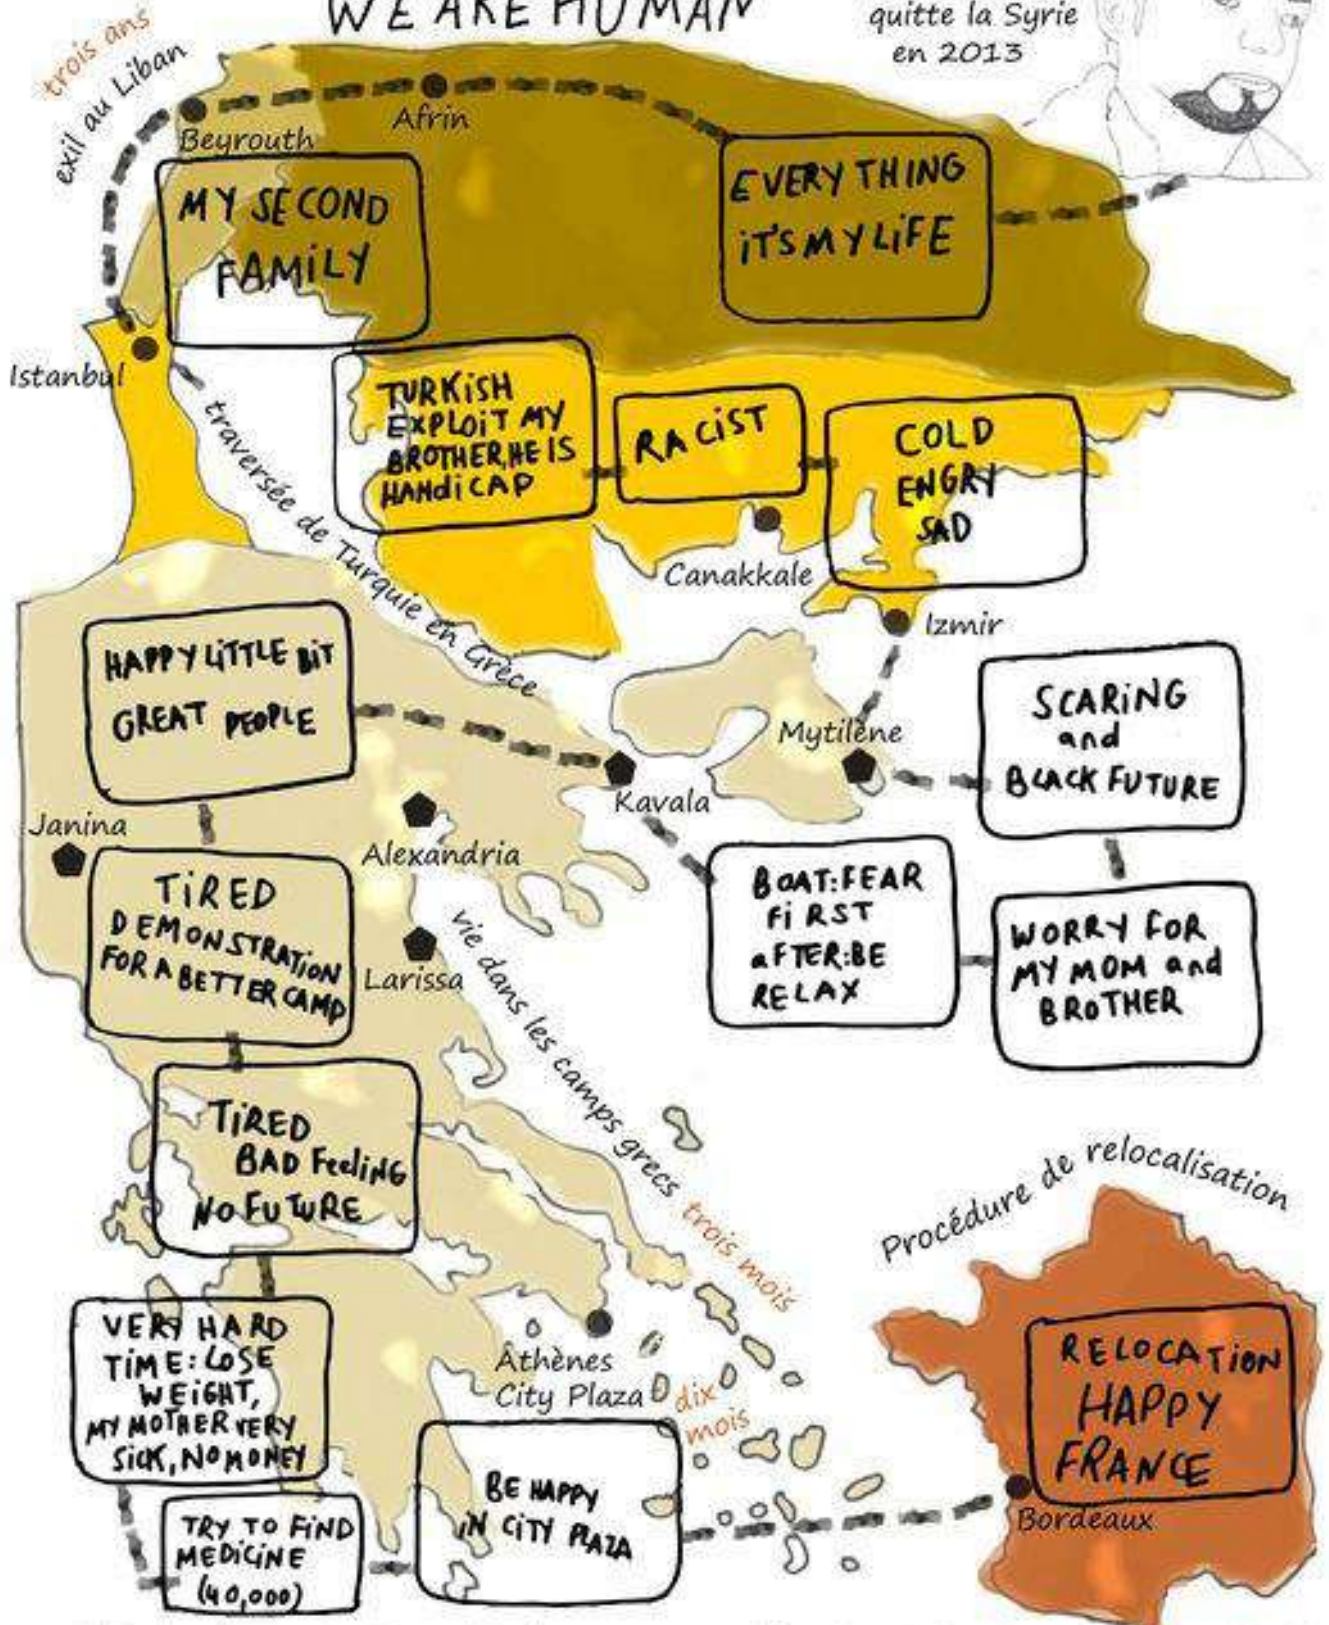 WE ARE HUMAN
quitte la Syrie
en 2013
trois ans
exil au Liban
Beyrouth
Afrin
MY SECOND
FAMiLY
EVERY THING
iT'S MY LiFE
Istanbul
TURKiSH
EXPLOiT MY
BROTHER, HE IS
HANdiCAP
RACiST
COLD
ENGRY
SAD
Canakkale
Izmir
traversée de Turquie en Grèce
HAPPY LiTTLE BiT
GREAT PEOPLE
Mytilène
SCARiNG
and
BLACK FUTURE
Kavala
Janina
Alexandria
TiRED
DEMONSTRATiON
FOR A BETTER CAMP
Larissa
BOAT: FEAR
FiRST
aFTER: BE
RELAX
WORRY FOR
MY MOM and
BROTHER
vie dans les camps grecs trois mois
TiRED
BAD FeeliNG
NO FUTURE
Procédure de relocalisation
VERY HARD
TiME: LOSE
WEiGHT,
MY MOTHER VERY
SiCK, NO MONEY
Athènes
City Plaza
dix
mois
RELOCATiON
HAPPY
FRANCE
BE HAPPY
iN CiTY PLAZA
Bordeaux
TRY TO FiND
MEDiCiNE
(40,000)